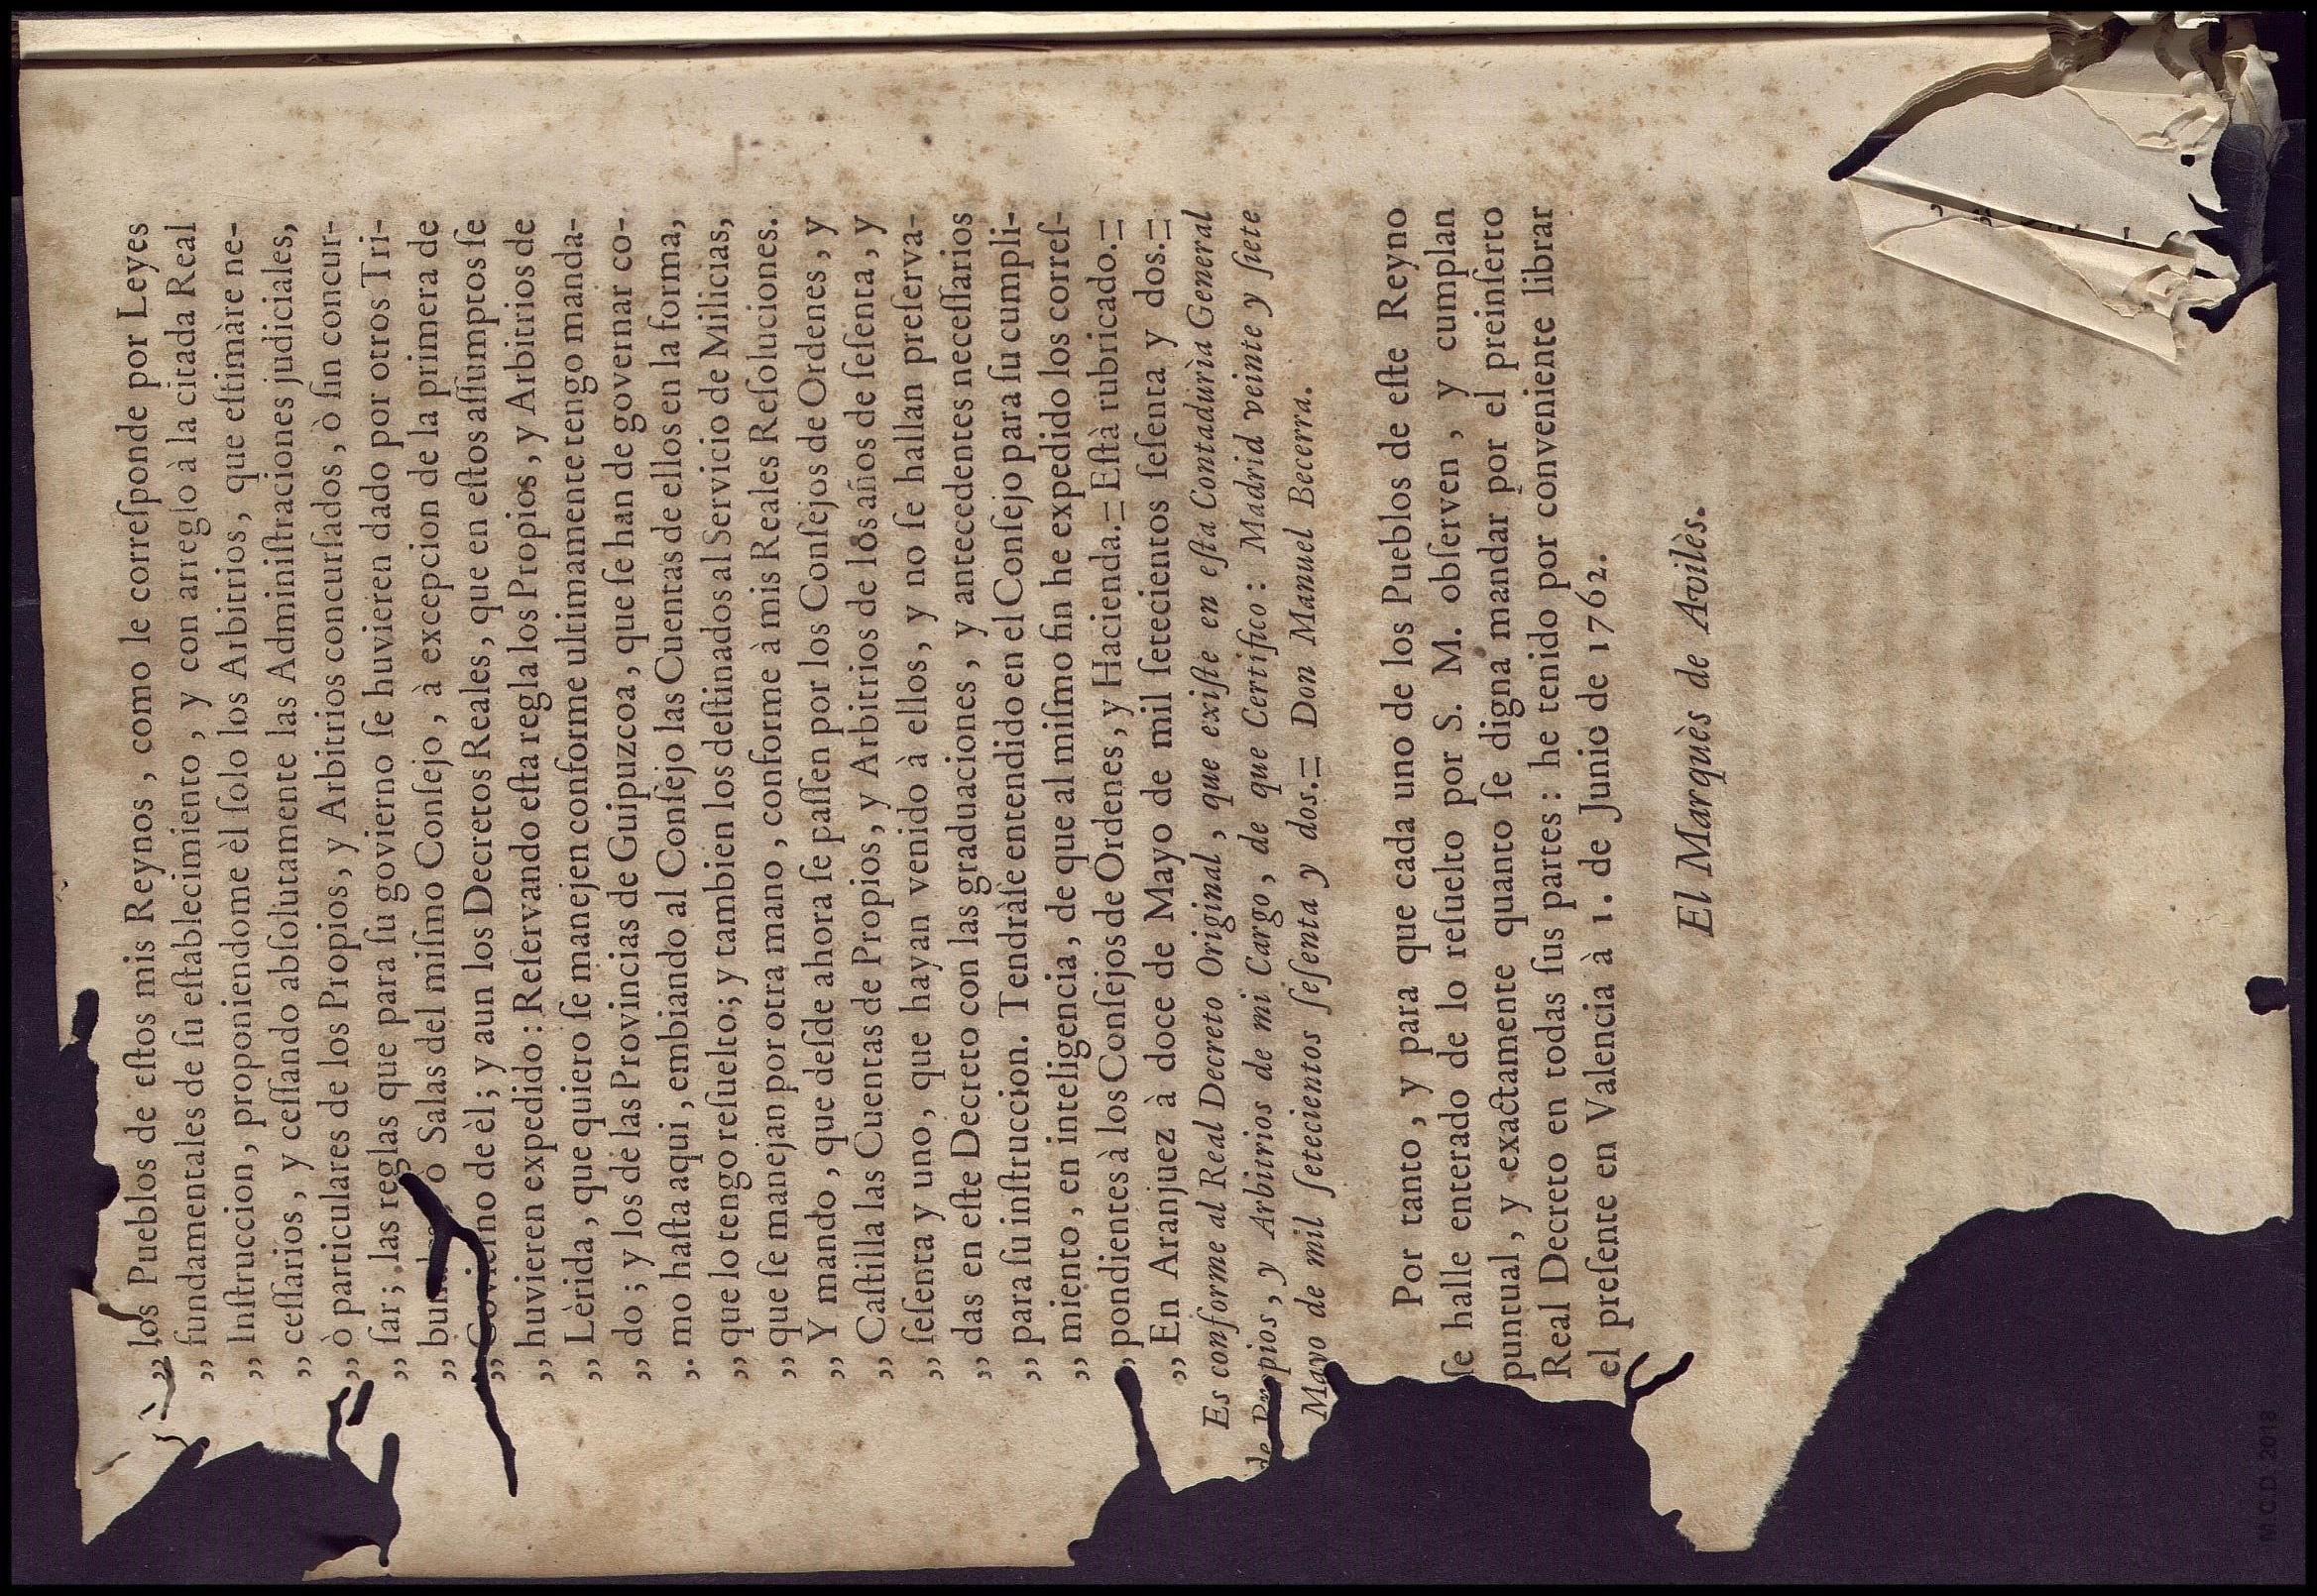 „ los Pueblos de eſtos mis Reynos, como le correſponde por Leyes
„ fundamentales de ſu eſtablecimiento, y con arreglo à la citada Real
„ Inſtruccion, proponiendome èl ſolo los Arbitrios, que eſtimàre ne-
„ ceſſarios, y ceſſando abſolutamente las Adminiſtraciones judiciales,
„ ò particulares de los Propios, y Arbitrios concurſados, ò ſin concur-
„ ſar; las reglas que para ſu govierno ſe huvieren dado por otros Tri-
„ ò Salas del miſmo Conſejo, à excepcion de la primera de
„ Govierno de èl; y aun los Decretos Reales, que en eſtos aſſumptos ſe
„ huvieren expedido: Reſervando eſta regla los Propios, y Arbitrios de
„ Lèrida, que quiero ſe manejen conforme ultimamente tengo manda-
„ do; y los de las Provincias de Guipuzcoa, que ſe han de governar co-
„. mo haſta aqui, embiando al Conſejo las Cuentas de ellos en la forma,
„ que lo tengo reſuelto; y tambien los deſtinados al Servicio de Milicias,
„ que ſe manejan por otra mano, conforme à mis Reales Reſoluciones.
„ Y mando, que deſde ahora ſe paſſen por los Conſejos de Ordenes, y
„ Caſtilla las Cuentas de Propios, y Arbitrios de los años de ſeſenta, y
„ ſeſenta y uno, que hayan venido à ellos, y no ſe hallan preſerva-
„ das en eſte Decreto con las graduaciones, y antecedentes neceſſarios
„ para ſu inſtruccion. Tendràſe entendido en el Conſejo para ſu cumpli-
„ miento, en inteligencia, de que al miſmo fin he expedido los correſ-
„ pondientes à los Conſejos de Ordenes, y Hacienda.= Eſtà rubricado.=
„ En Aranjuez à doce de Mayo de mil ſetecientos ſeſenta y dos.=
Es conforme al Real Decreto Original, que exiſte en eſta Contadurìa General
de Propios, y Arbitrios de mi Cargo, de que Certifico: Madrid veinte y ſiete
Mayo de mil ſetecientos ſeſenta y dos.= Don Manuel Becerra.
Por tanto, y para que cada uno de los Pueblos de eſte Reyno
ſe halle enterado de lo reſuelto por S. M. obſerven, y cumplan
puntual, y exactamente quanto ſe digna mandar por el preinſerto
Real Decreto en todas ſus partes: he tenido por conveniente librar
el preſente en Valencia à 1. de Junio de 1762.
El Marquès de Avilès.
M.C.D. 2018